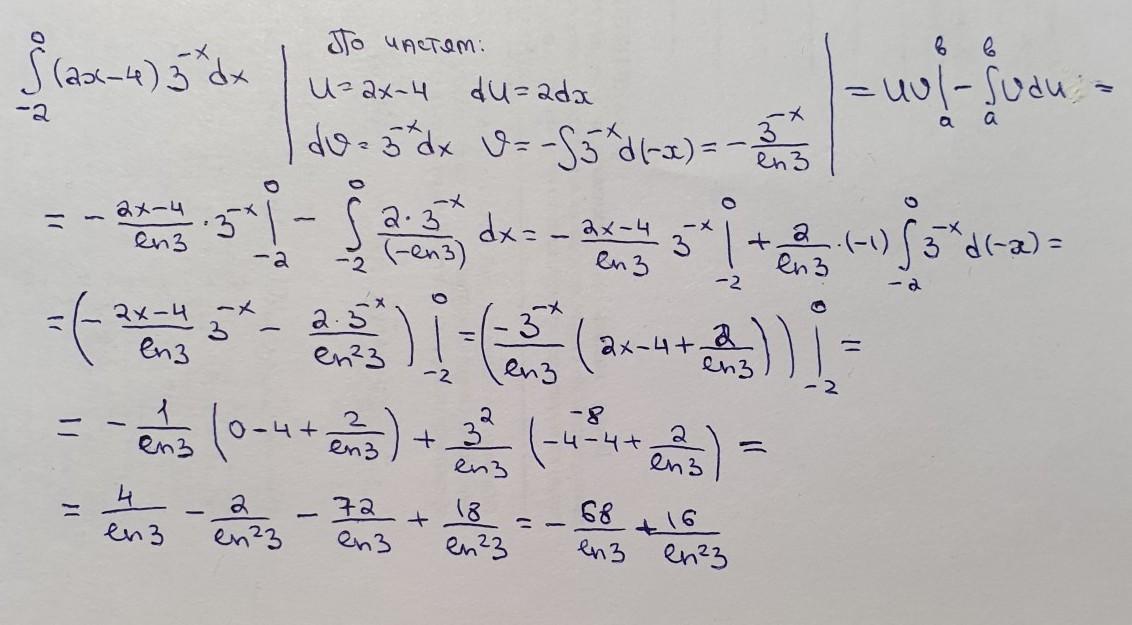 ∫₋₂⁰ (2x−4) 3⁻ˣdx | По частям: u=2x−4 du=2dx dv=3⁻ˣdx v=−∫3⁻ˣd(−x)=−3⁻ˣ/ln3 | = uv|ₐᵇ − ∫ₐᵇ v du =
= −(2x−4)/ln3 · 3⁻ˣ|₋₂⁰ − ∫₋₂⁰ 2·3⁻ˣ/(−ln3) dx = −(2x−4)/ln3 3⁻ˣ|₋₂⁰ + 2/ln3 ·(−1) ∫₋₂⁰ 3⁻ˣd(−x) =
= (−(2x−4)/ln3 3⁻ˣ − 2·3⁻ˣ/ln²3)|₋₂⁰ = (−3⁻ˣ/ln3 (2x−4+2/ln3))|₋₂⁰ =
= −1/ln3 (0−4+2/ln3) + 3²/ln3 (−4−4+2/ln3) = −8
= 4/ln3 − 2/ln²3 − 72/ln3 + 18/ln²3 = −68/ln3 + 16/ln²3